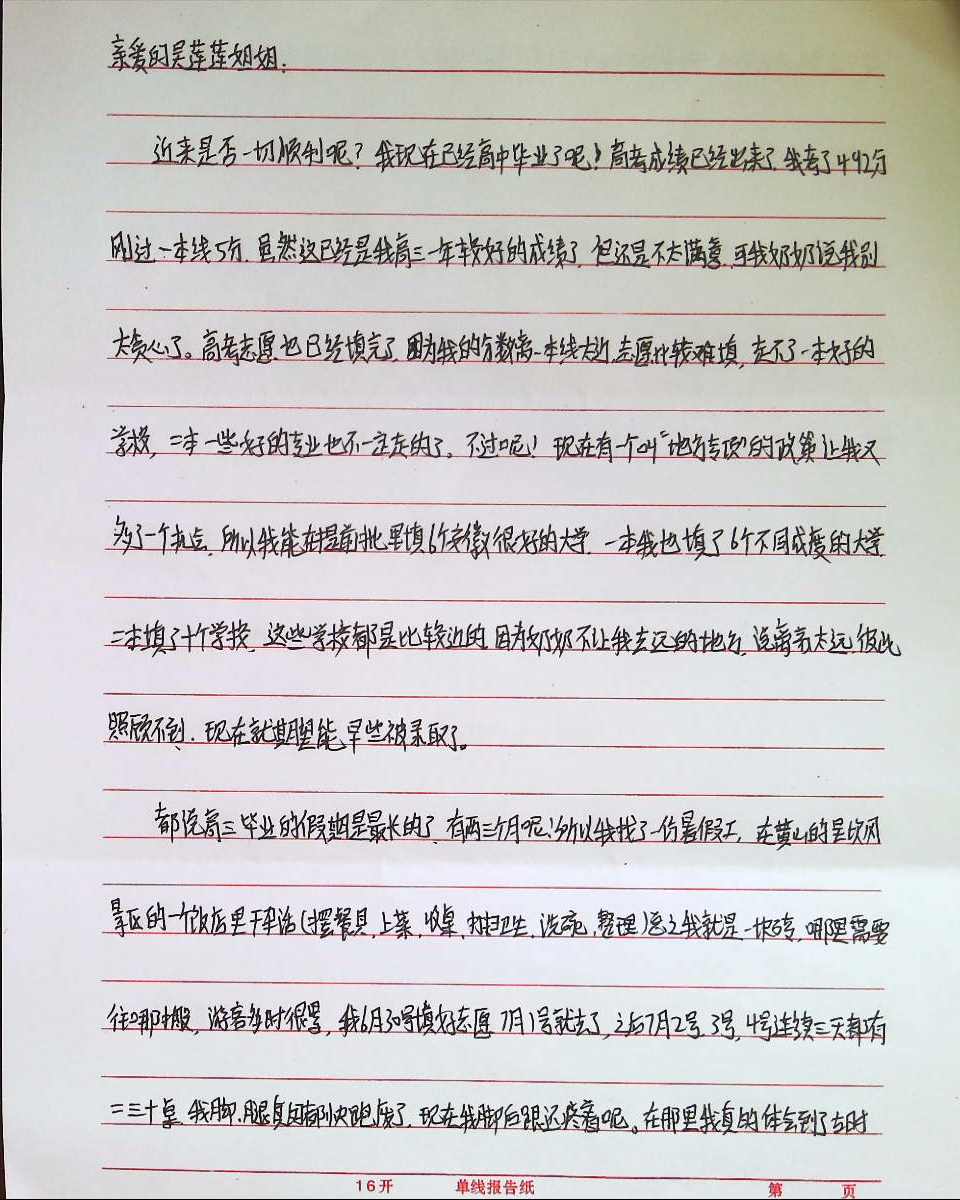 亲爱的吴莲莲姐姐:
近来是否一切顺利呢?我现在已经高中毕业了呢!高考成绩已经出来了,我考了492分
刚过一本线5分,虽然这已经是我高三一年较好的成绩了,但还是不太满意,可我奶奶说我别
太贪心了。高考志愿也已经填完了,因为我的分数离一本线太近,志愿比较难填,走不了一本好的
学校,二本一些好的专业也不一定走的了。不过呢!现在有一个叫“地方专项”的政策让我又
多了一个机会,所以我能在提前批里填6个安徽很好的大学,一本我也填了6个不同成度的大学,
二本填了十个学校,这些学校都是比较近的,因为奶奶不让我去远的地方,说离家太远,彼此
照顾不到,现在就期望能早些被录取了。
都说高三毕业的假期是最长的了,有两三个月呢!所以我找了一份暑假工,在黄山的景区风
景区的一个饭店里干杂活(摆餐具,上菜,收桌,打扫卫生,洗碗,整理)总之我就是一块砖,哪里需要
往哪搬,游客多时很累,我6月30号填好志愿,7月1号就去了,之后7月2号,3号,4号连续三天都有
二三十桌,我脚、腿真的都快跑废了,现在我脚后跟还疼着呢。在那里我真的体会到了古时
16开 单线报告纸 第 页